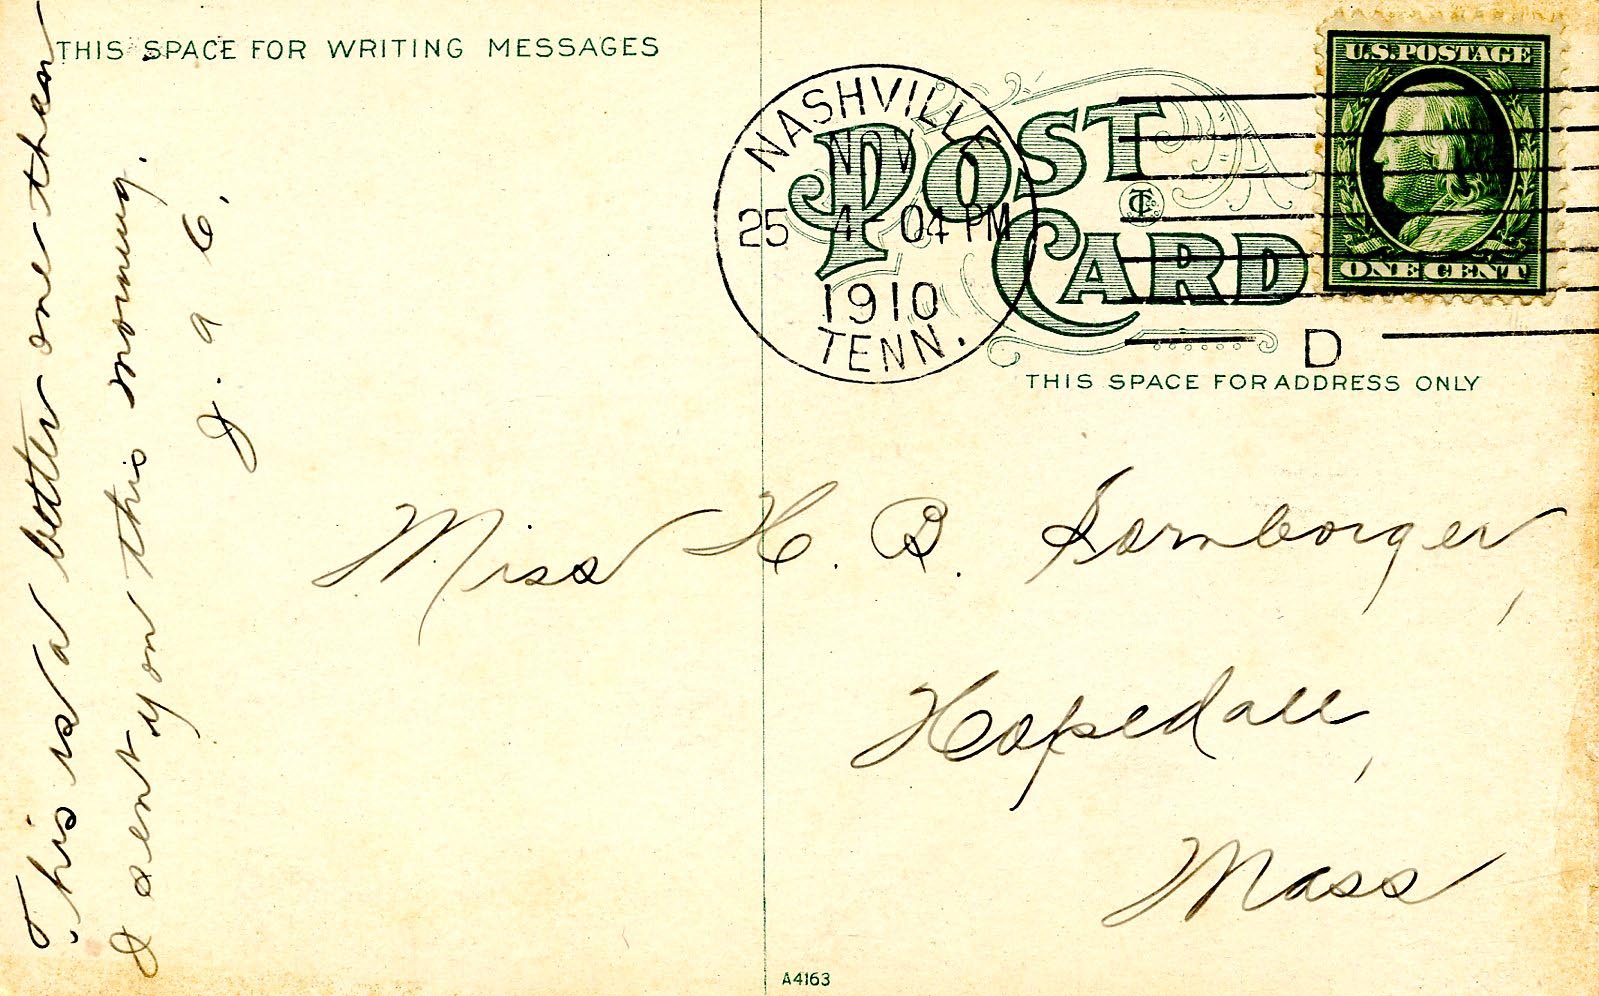 THIS SPACE FOR WRITING MESSAGES
This is a better one than
I sent you this morning.
J. a G.
NASHVILLE
NOV
25 4 - 04 PM
1910
TENN.
D
POST
CARD
U.S. POSTAGE
ONE CENT
THIS SPACE FOR ADDRESS ONLY
Miss H. B. Sornborger,
Hopedale,
Mass
A4163